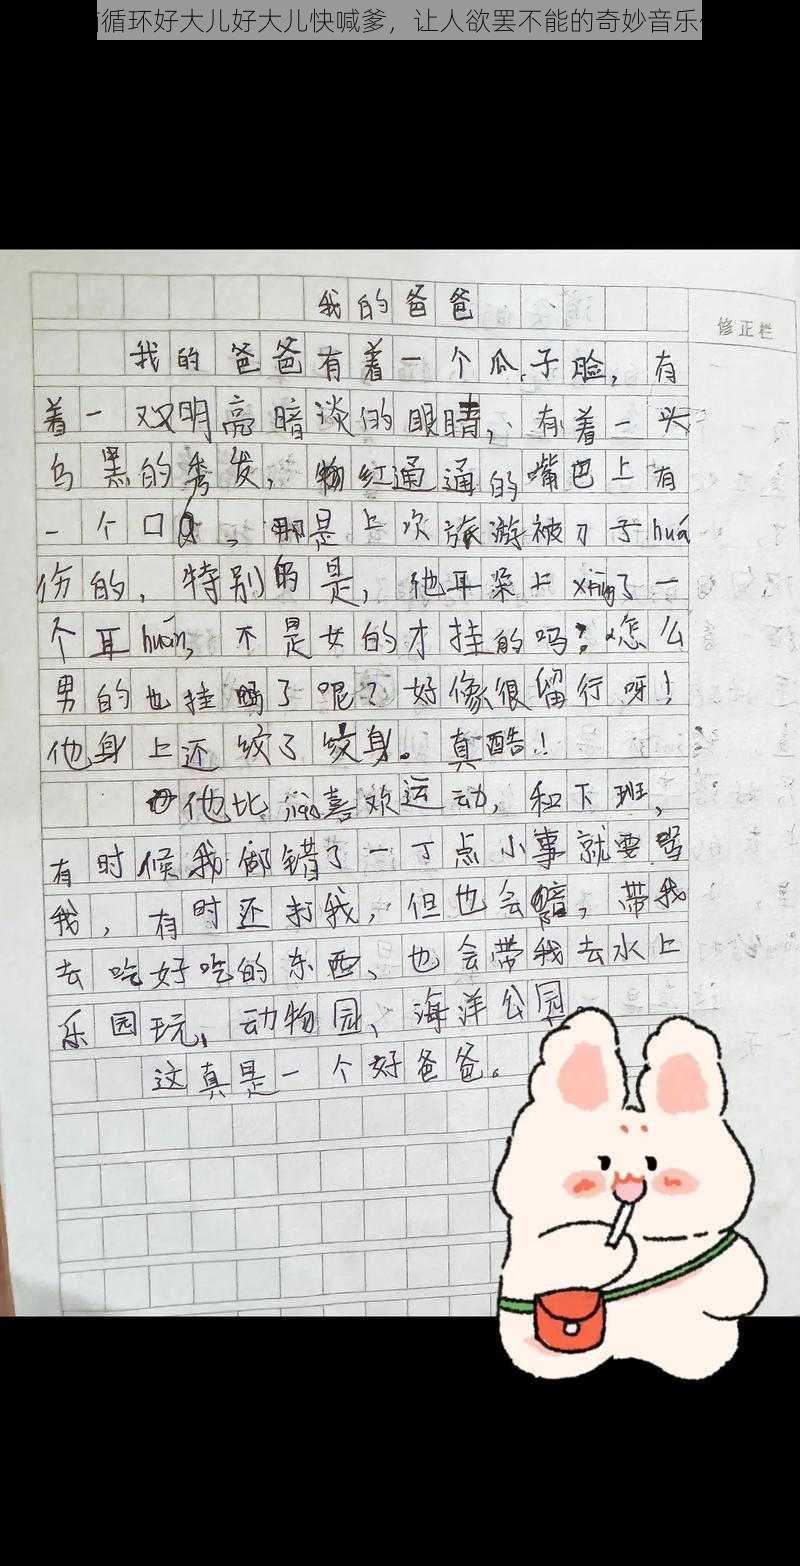 循环好大儿好大儿快喊爹，让人欲罢不能的奇妙音乐
我的爸爸
修正栏
我的爸爸有着一个瓜子脸，有
着一双明亮暗淡的眼睛，有着一头
乌黑的秀发，红通通的嘴巴上有
一个口，那是上次旅游被刀子huá
伤的，特别的是，他耳朵上了一
个耳huán，不是女的才挂的吗？怎么
男的也挂了呢？好像很留行呀！
他身上还纹了纹身。真酷！
他比jiào喜欢运动，和下班，
有时候我都错了一丁点小事就要骂
我，有时还打我，但也会，带我
去吃好吃的东西、也会带我去水上
乐园玩，动物园、海洋公园
这真是一个好爸爸。